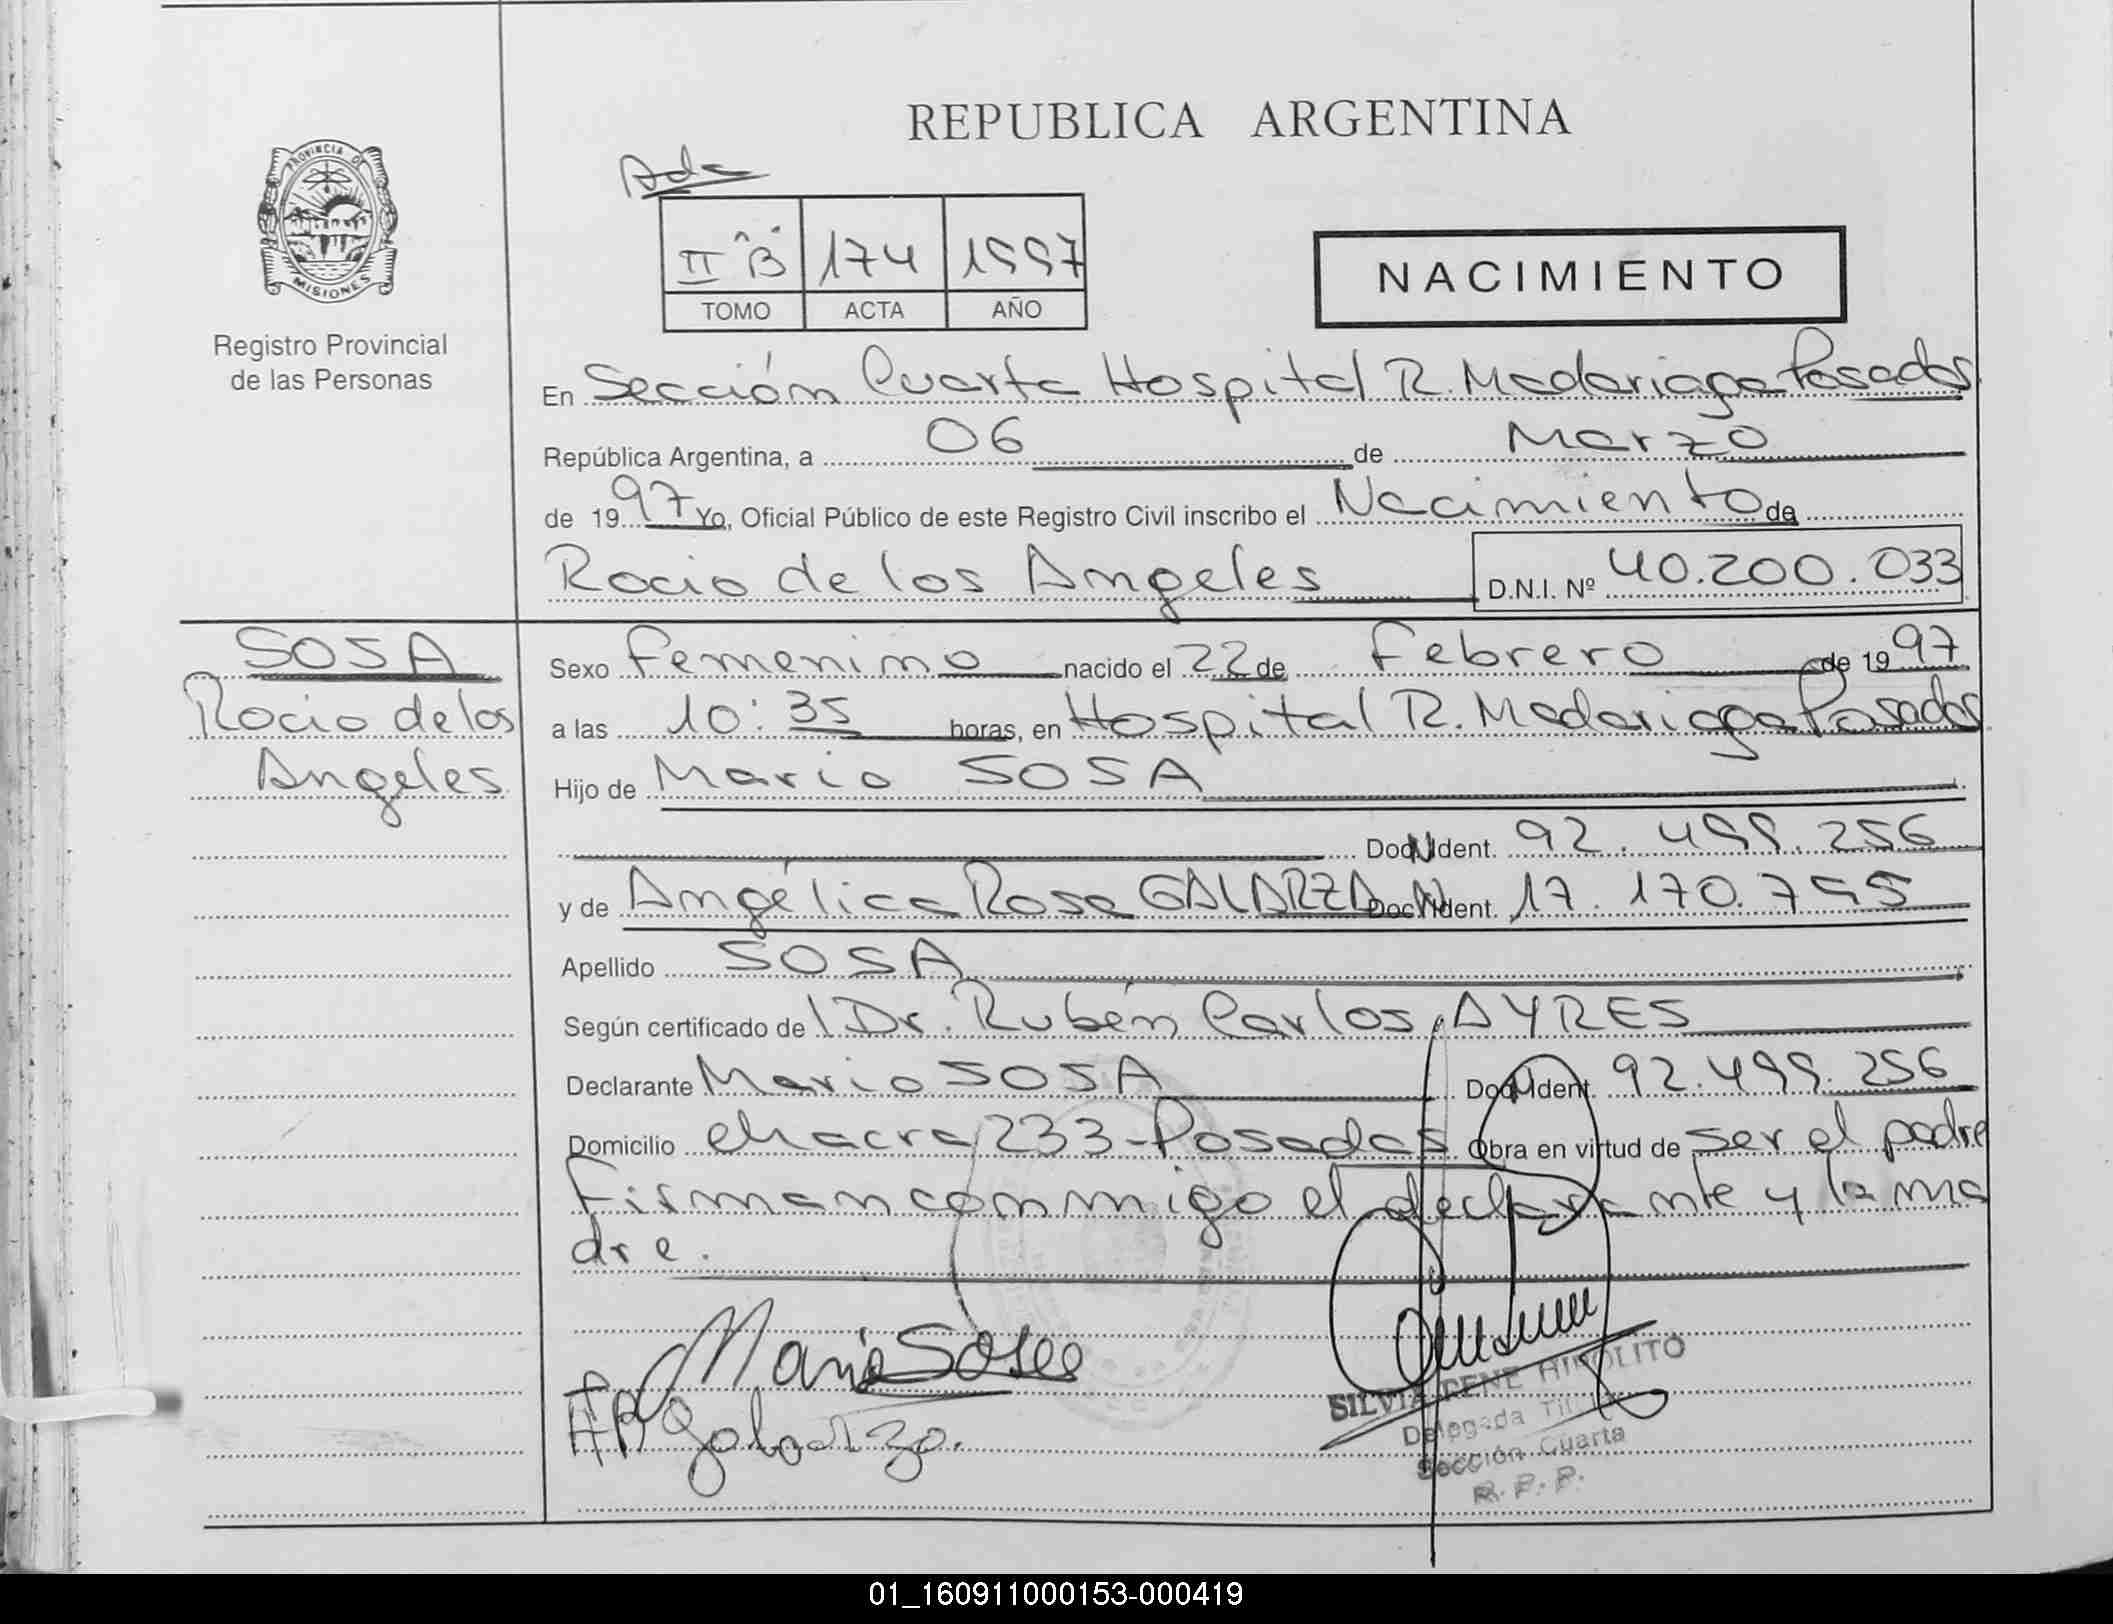 REPUBLICA ARGENTINA
PROVINCIA DE
MISIONES
Registro Provincial
de las Personas
Adc
II "B" 174 1997
TOMO ACTA AÑO
NACIMIENTO
En Sección Cuarta Hospital R. Madariaga Posadas
República Argentina, a 06 de Marzo
de 1997 Yo, Oficial Público de este Registro Civil inscribo el Nacimiento de
Rocio de los Angeles D.N.I. Nº 40.200.033
SOSA
Rocio de los
Angeles
Sexo Femenino nacido el 22 de Febrero de 1997
a las 10:35 horas, en Hospital R. Madariaga Posadas
Hijo de Mario SOSA
Doc N Ident. 92.499.256
y de Angélica Rosa GALARZA Doc N Ident. 17.170.795
Apellido SOSA
Según certificado de l Dr. Rubén Carlos AYRES
Declarante Mario SOSA Doc N Ident. 92.499.256
Domicilio chacra 233 - Posadas Obra en virtud de ser el padre
Firman conmigo el declarante y la ma
dre.
Mario Sosa
Galarza.
SILVIA RENE HIPOLITO
Delegada Titular
Sección Cuarta
R. P. P.
01_160911000153-000419